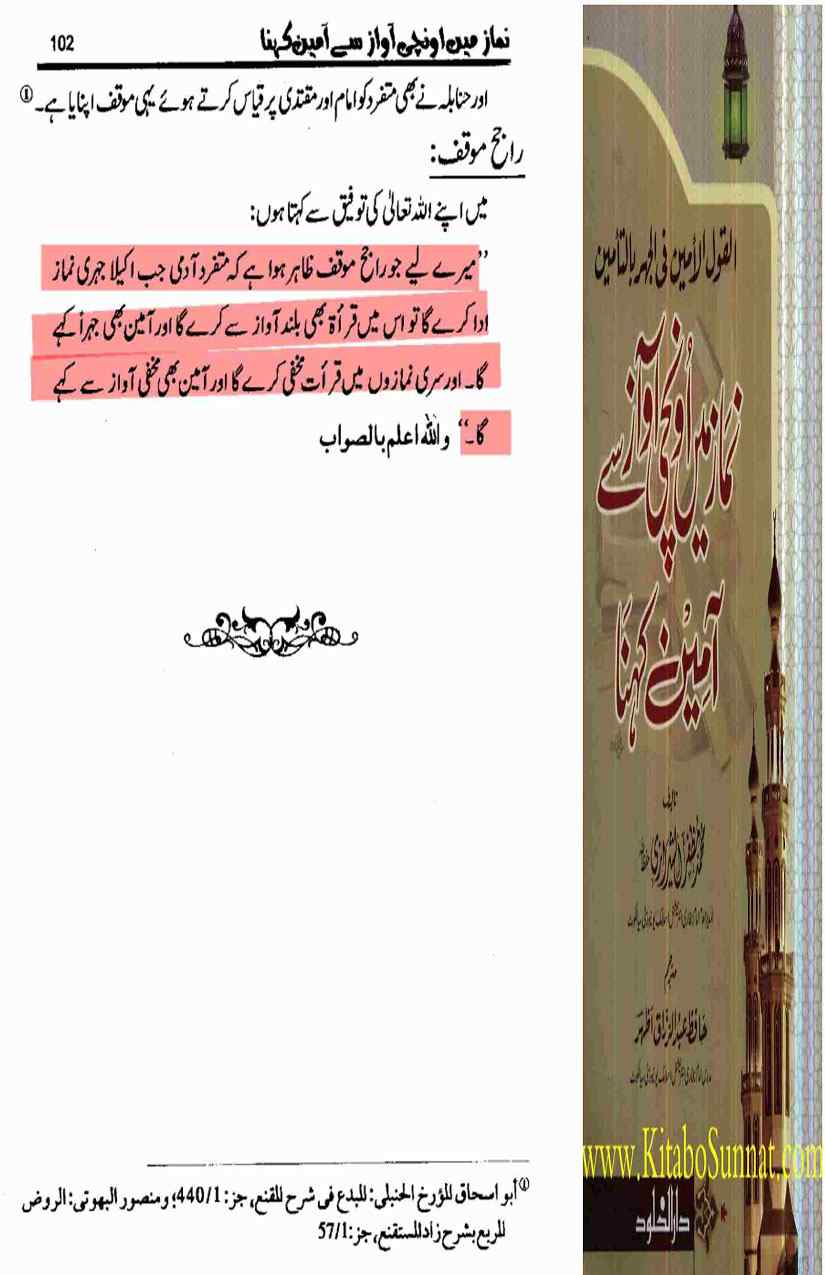 نماز میں اونچی آواز سے آمین کہنا
102
اور حنابلہ نے بھی منفرد کو امام اور مقتدی پر قیاس کرتے ہوئے یہی موقف اپنایا ہے۔①
راجح موقف:
میں اپنے اللہ تعالیٰ کی توفیق سے کہتا ہوں:
”میرے لیے جو راجح موقف ظاہر ہوا ہے کہ منفرد آدمی جب اکیلا جہری نماز
ادا کرے گا تو اس میں قرأۃ بھی بلند آواز سے کرے گا اور آمین بھی جہراً کہے
گا۔ اور سری نمازوں میں قرأت مخفی کرے گا اور آمین بھی مخفی آواز سے کہے
گا۔“ واللہ اعلم بالصواب
① أبو اسحاق المؤرخ الحنبلی: المبدع فی شرح المقنع، جز: 440/1؛ ومنصور البھوتی: الروض
المربع بشرح زاد المستقنع، جز: 57/1
القول الأمین فی الجہر بالتأمین
نماز میں اُونچی آواز سے
آمین کہنا
تالیف
محمد مظفر الشیرازی
مترجم
حافظ عبدالرزاق اظہر
www.KitaboSunnat.com
دار الخلود